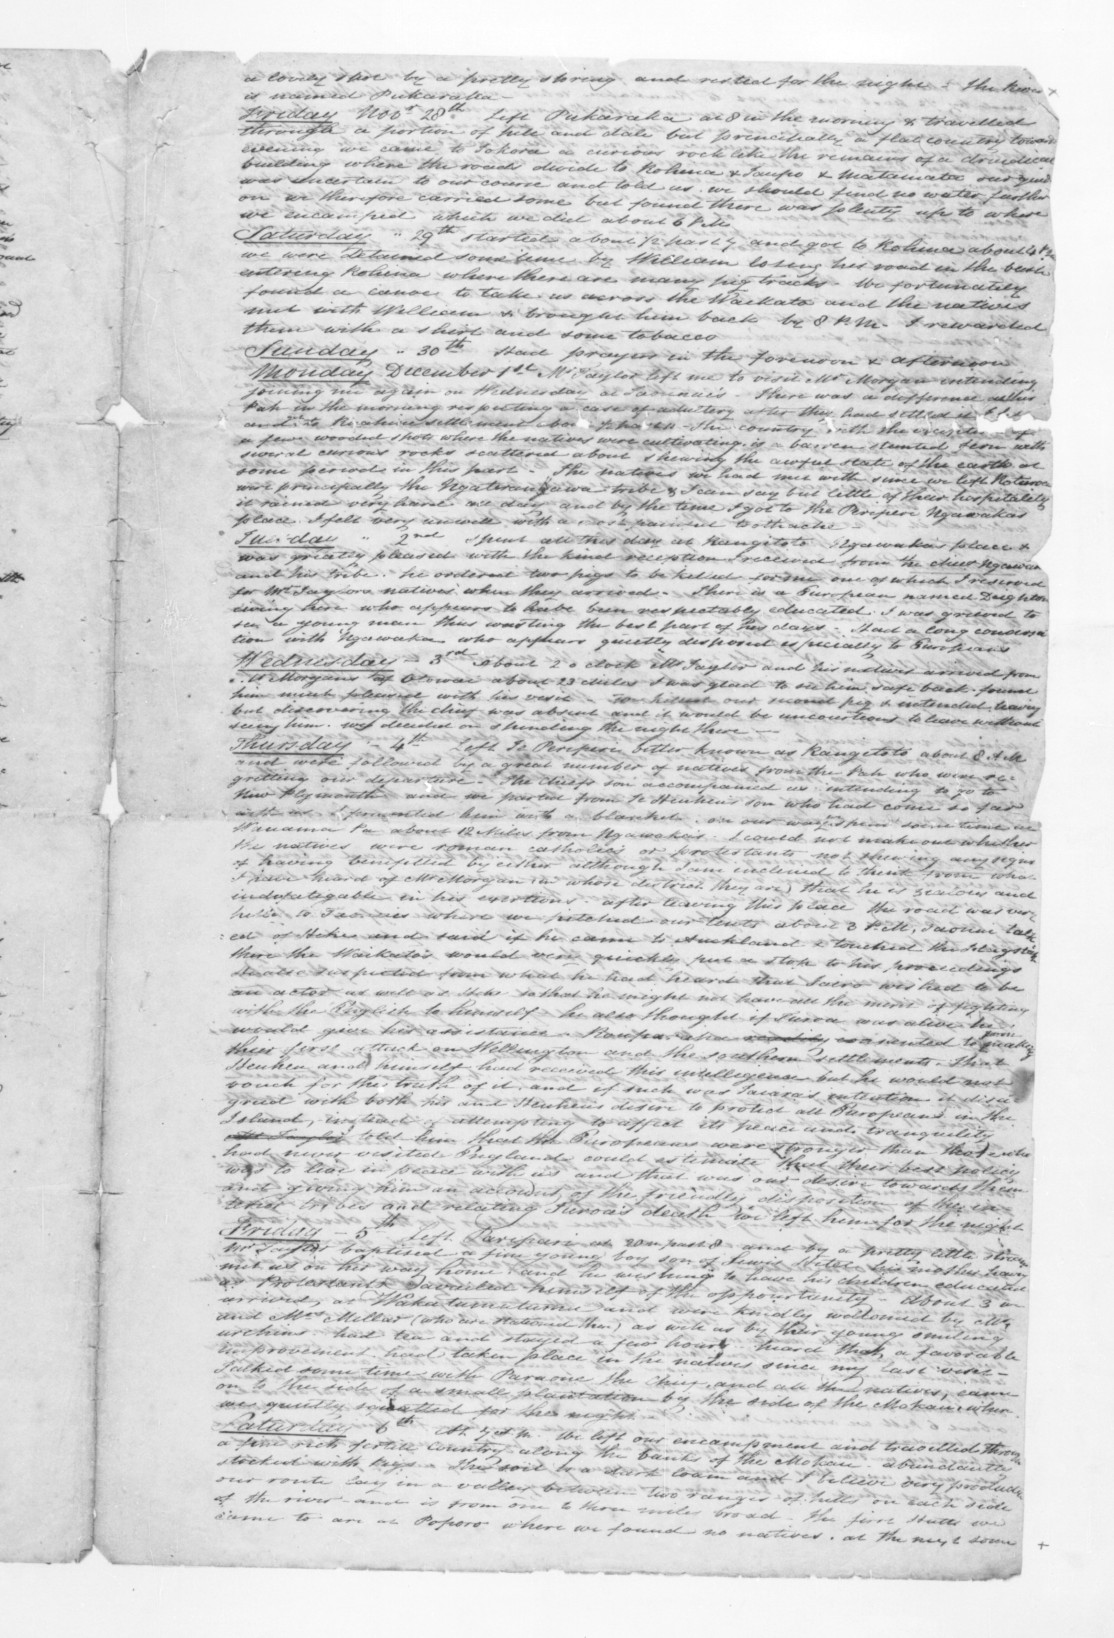 a lovely spot by a pretty spring and rested for the night - the River
is named Pukaraka -
Friday Novr 28th Left Pukaraka at 8 in the morning & travelled
through a portion of hill and dale but principally a flat country toward
evening we came to Tokora a curious rock like the remains of a druidical
building where the roads divide to Kohina & Taupo & Matamata our guide
was uncertain to our course and told us we should find no water further
on we therefore carried some but found there was plenty up to where
we encamped which we did about 6 P.M.
Saturday " 29th started about 1/2 past 7 and got to Kohina about 4 P.M.
we were detained some time by William losing his road in the bush
entering Kohina where there are many pig tracks. We fortunately
found a canoe to take us across the Waikato and the natives
met with William & brought him back by 8 P.M. I rewarded
them with a shirt and some tobacco
Sunday " 30th Had prayers in the forenoon & afternoon
Monday December 1st Mr Taylor left me to visit Mr Morgan intending
joining me again on Wednesday at . There was a difference at this
Pah in the morning respecting a case of adultery after they had settled it I left
and settlement about The country with the exception of
a few wooded spots where the natives were cultivating is a barren stunted fern with
several curious rocks scattered about shewing the awful state of the earth at
some period in this part. The natives we had met with since we left Rotorua
were principally the tribe & I can say but little of their hospitality
it rained very hard all day and by the time I got to the Peripere Ngawakas
place I felt very unwell with a most painful toothache -
Tuesday " 2nd Spent all this day at Rangitoto Ngawaka's place &
was greatly pleased with the kind reception I received from the chief Ngawaka
and his tribe. he ordered two pigs to be killed for me one of which I reserved
for Mr Taylors natives when they arrived. There is a European named Deighton
living here who appears to have been respectably educated. I was grieved to
see a young man thus wasting the best part of his days. Had a long conversa
tion with Ngawaka who appears quietly disposed especially to Europeans
Wednesday - 3rd About 2 o clock Mr Taylor and his natives arrived from
Mr Morgans at Otawao about 23 miles I was glad to see him safe back found
him much pleased with his visit. We killed our second pig & intended leaving
but discovering the chief was absent and it would be uncourteous to leave without
seeing him. we decided on spending the night there -
Thursday - 4th Left Te Peripere better known as Rangitoto about 8 A.M
and were followed by a great number of natives from the Pah who were re-
gretting our departure. The chiefs son accompanied us intending to go to
New Plymouth and we parted from Te Heuheu's son who had come so far
with us I presented him with a blanket. on our way spent some time at
Pa about 12 miles from Ngawaka's. I could not make out whether
the natives were roman catholics or protestants not shewing any signs
of having benefitted by either although I am inclined to think from what
I have heard of Mr Morgan (in whose district they are) that he is zealous and
indefatigable in his exertions. after leaving this place the road was very
hilly to where we pitched our tents about 3 P.M, talk
ed of Heke and said if he came to Auckland & touched the flag staff
there the Waikato's would very quickly put a stop to his proceedings
He also suspected from what he had heard that wished to be
an actor as well as Heke so that he might not have all the merit of fighting
with the English to himself he also thought if was alive he
would give his assistance. Rauparaha consented to join in making
their first attack on Wellington and the southern settlements. That
Heuheu and himself had received this intelligence but he would not
vouch for the truth of it, and if such was intention it disa
greed with both his and Heuheu's desire to protect all Europeans in the
Island, instead of attempting to affect its peace and tranquility
told him that the Europeans were stronger than those who
had never visited England could estimate that their best policy
was to live in peace with us and that was our desire towards them
and giving him an account of the friendly disposition of the in
terior tribes and relating death we left him for the night
Friday - 5th Left Paripari at 20 m past 8 and by a pretty little stream
Mr Taylor baptised a fine young boy son of Lewis his mother having
met us on her way home and he wishing to have his children educated
as Protestants availed himself of the opportunity - About 3 we
arrived at and were kindly welcomed by Mr
and Mrs Miller (who are stationed there) as well as by their young smiling
urchins had tea and stayed a few hours. heard that a favorable
improvement had taken place in the natives since my last visit -
Talked some time with the Chief, and all the natives, came
on to the side of a small plantation by the side of the Mokau where
we quietly squatted for the night
Saturday 6th At 7 A.M. We left our encampment and travelled through
a fine rich fertile country along the banks of the Mokau abundantly
stocked with pigs - The soil is a dark loam and I believe very productive
our route lay in a valley between two ranges of hills on each side
of the river and is from one to three miles broad. The first huts we
came to are at Poporo where we found no natives. at the next some